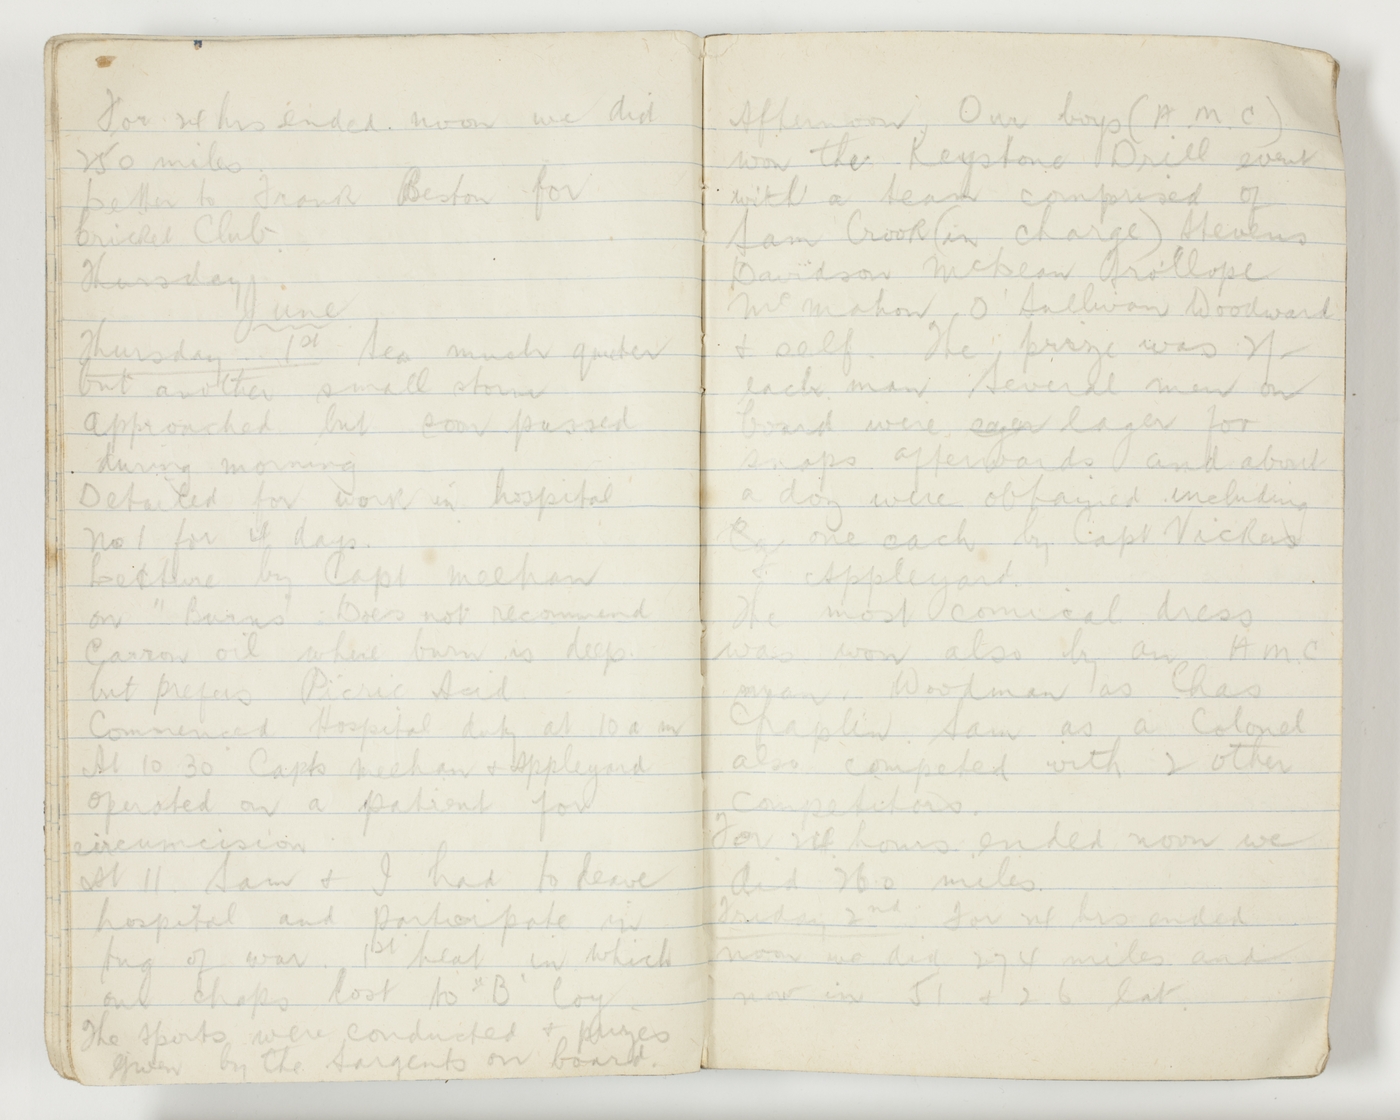 For 24 hrs ended noon we did
250 miles
Letter to Frank Beston for
Cricket Club.
Thursday
June
Thursday 1st Sea much quieter
but another small storm
approached but soon passed
during morning
Detailed for work in hospital
No 1 for 4 days.
Lecture by Capt Meehan
on "Burns" Does not recommend
Carron oil where burn is deep.
but prefers Picric Acid
Commenced Hospital duty at 10 a m
At 10 30 Capts Meehan & Appleyard
operated on a patient for
circumcision
At 11 Sam & I had to leave
hospital and participate in
tug of war. 1st heat in which
our chaps lost to "B" Coy
The sports were conducted & prizes
given by the Sargents on board.
Afternoon, Our boys (A. M. C)
won the Keystone Drill event
with a team comprised of
Sam Crook (in charge) Stevens
Davidson McBean Grollope
McMahon O'Sullivan Woodward
& self. The prize was 2/-
each man Several men on
board were eager for
snaps afterwards and about
a doz were obtained including
one each by Capt Vickers
& Appleyard.
The most comical dress
was won also by an A M C
man. Woodman as Chas
Chaplin. Sam as a Colonel
also competed with 2 other
competitors.
For 24 hours ended noon we
did 260 miles.
Friday 2nd For 24 hrs ended
noon we did 274 miles and
now in 51 & 26 Lat.